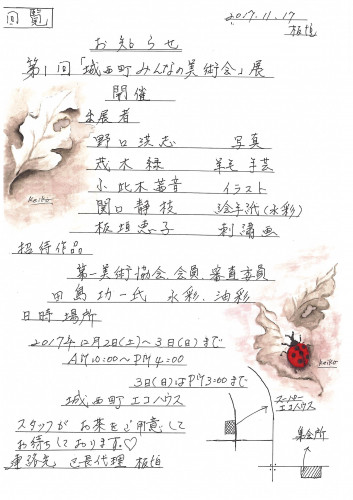 回覧
2017.11.17
板垣
お知らせ
第1回「城西町みんなの美術会」展
開催
出展者
野口洪志 写真
茂木緑 羊毛手芸
小此木茜音 イラスト
関口静枝 絵手紙(水彩)
板垣恵子 刺繍画
招待作品
第一美術協会会員、審査委員
田島功一氏 水彩、油彩
日時場所
2017年12月2日(土)~3日(日)まで
AM10:00~PM4:00
3日(日)はPM3:00まで
城西町エコハウス
スタッフがお茶をご用意して
お待ちしております♡
連絡先 区長代理 板垣
keiko
keiko
エコハウス
集会所